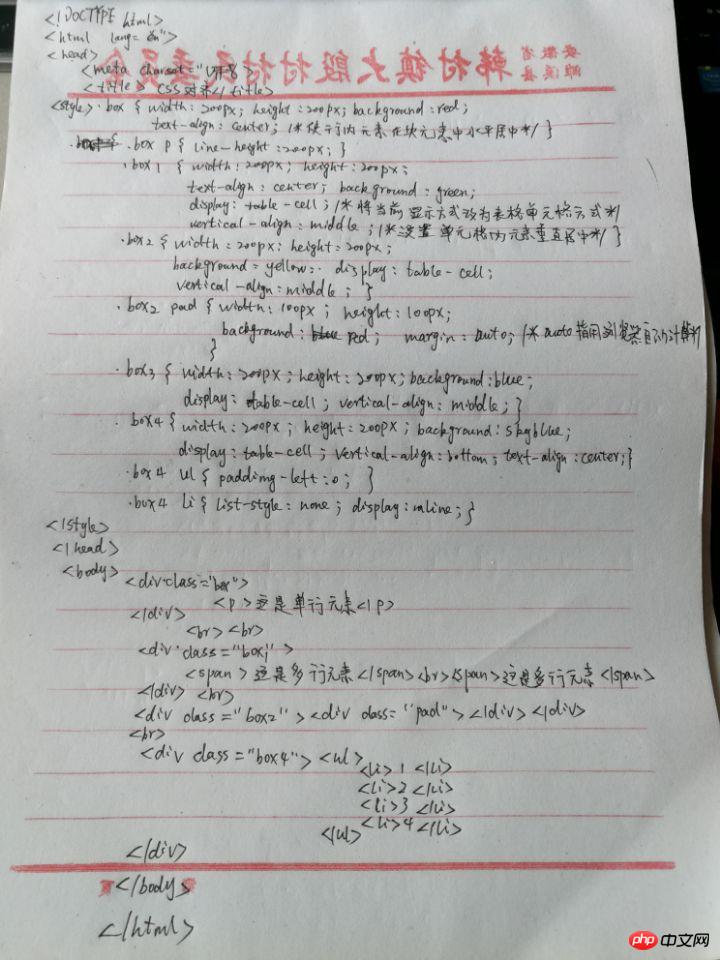 <!DOCTYPE html>
<html lang="en">
<head>
<meta charset="UTF8">
安徽省
濉溪县
韩村镇大殷村村民委员会
<title>CSS对齐</title>
<style> .box { width: 200px; height: 200px; background: red;
text-align: center; /*使行内元素在块元素中水平居中*/ }
.box p { line-height: 200px; }
.box1 { width: 200px; height: 200px;
text-align: center; background: green;
display: table-cell; /*将当前显示方式改为表格单元格方式*/
vertical-align: middle; /*设置单元格内元素垂直居中*/ }
.box2 { width: 200px; height: 200px;
background = yellow; display: table-cell;
vertical-align: middle; }
.box2 pad { width: 100px; height: 100px;
background: red; margin: auto; /*auto指用浏览器自动计算*/
}
.box3 { width: 200px; height: 200px; background: blue;
display: table-cell; vertical-align: middle; }
.box4 { width: 200px; height: 200px; background: skyblue;
display: table-cell; vertical-align: bottom; text-align: center; }
.box4 ul { padding-left: 0; }
.box4 li { list-style: none; display: inline; }
</style>
</head>
<body>
<div class="box">
<p>这是单行元素</p>
</div>
<br><br>
<div class="box1">
<span>这是多行元素</span><br><span>这是多行元素</span>
</div> <br>
<div class="box2"> <div class="pad"> </div> </div>
<br>
<div class="box4"> <ul>
<li>1 </li>
<li>2 </li>
<li>3 </li>
<li>4 </li>
</ul>
</div>
</body>
</html>
php中文网